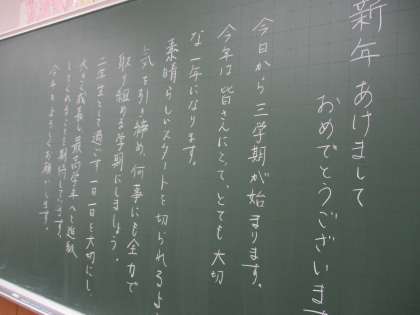 新年 あけまして
おめでとうございます
今日から三学期が始まります。
今年は皆さんにとって、とても大切
な一年になります。
素晴らしいスタートを切られるよ
気を引き締め、何事にも全力で
取り組める学期にしましょう。
二年生として過ごす一日一日を大切にし、
大きく成長し最高学年へと進級
してくれることを期待しています。
今年もよろしくお願いします。